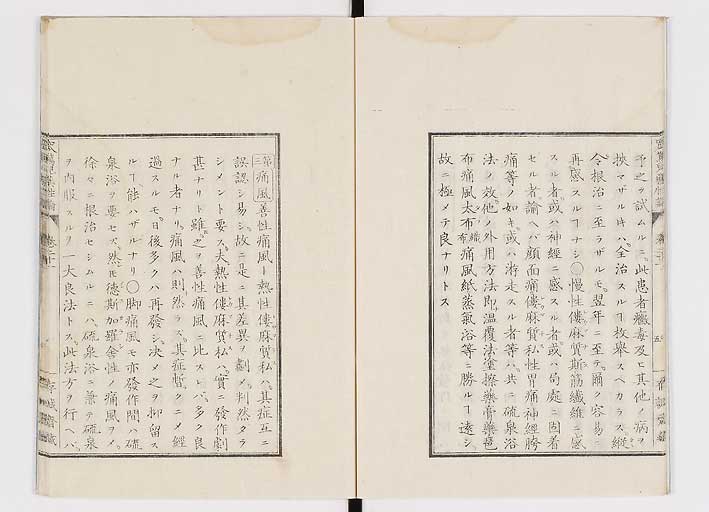 予之ヲ試ムルニ、此患者黴毒及ヒ其他ノ病ヲ
挾マザル時ハ、全治スルヿ枚舉スヘカラス、縱
令根治ニ至ラザルモ、翌年ニ至テ、爾ク容易ニ
再感スルヿナシ◯慢性僂麻質斯筋纖維ニ感
スル者、或ハ神經ニ感スル者、或ハ局處ニ固着
セル者諭ヘバ顏面痛僂麻質私性胃痛神經胯
痛等ノ如キ、或ハ游走スル者等ハ、共ニ硫泉浴
法ノ效、他ノ外用方法即温覆法塗擦藥膏藥琶
布痛風太布痛風紙蒸氣浴等ニ勝ルヿ遠シ、
故ニ極メテ良ナリトス
第三 痛風善性痛風ト熱性僂麻質私ハ、其症互ニ
誤認シ易シ、故ニ是ニ其差異ヲ劃メ、判然タラ
シメント要ス、夫熱性僂麻質私ハ、實ニ發作劇
甚ナリト雖、之ヲ善性痛風ニ比スレバ、多ク良
ナル者ナリ、痛風ハ則然ラズ、其症暫クニメ經
過スルモ、日後多クハ再發シ、決メ之ヲ抑留ス
ルヿ能ハザルナリ◯脚痛風モ亦發作間ハ硫
泉浴ヲ要セズ、然モ德斯加羅舍性ノ痛風ヲメ、
徐々ニ根治セシムルニハ、硫泉浴ニ兼テ硫泉
ヲ内服スルヲ一大良法トス、此法方ヲ行ヘバ、